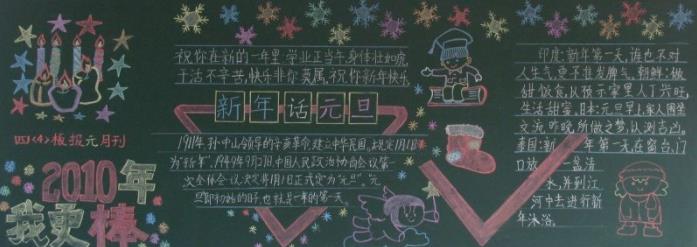 祝你在新的一年里,学业正当午,身体壮如虎,
干活不辛苦,快乐非你莫属,祝你新年快乐
新年话元旦
1911年,孙中山领导的辛亥革命,建立中华民国,规定1月1日
为"新年"。1949年9月27日,中国人民政治协商会议第
一次全体会议,决定将1月1日正式定为"元旦"。元
旦即初始的日子,也就是一年的第一天。
四〈4〉板报元月刊
2010年
我更棒
印度:新年第一天,谁也不对
人生气,更不准发脾气。朝鲜:做
甜饭食,以预示家里人丁兴旺,
生活甜蜜。日本:元旦早上,家人围坐
交流昨晚所做之梦,认测吉凶。
泰国:新年第一天,在窗台,门
口放一盘清
水,并到江
河中去进行新
年沐浴。